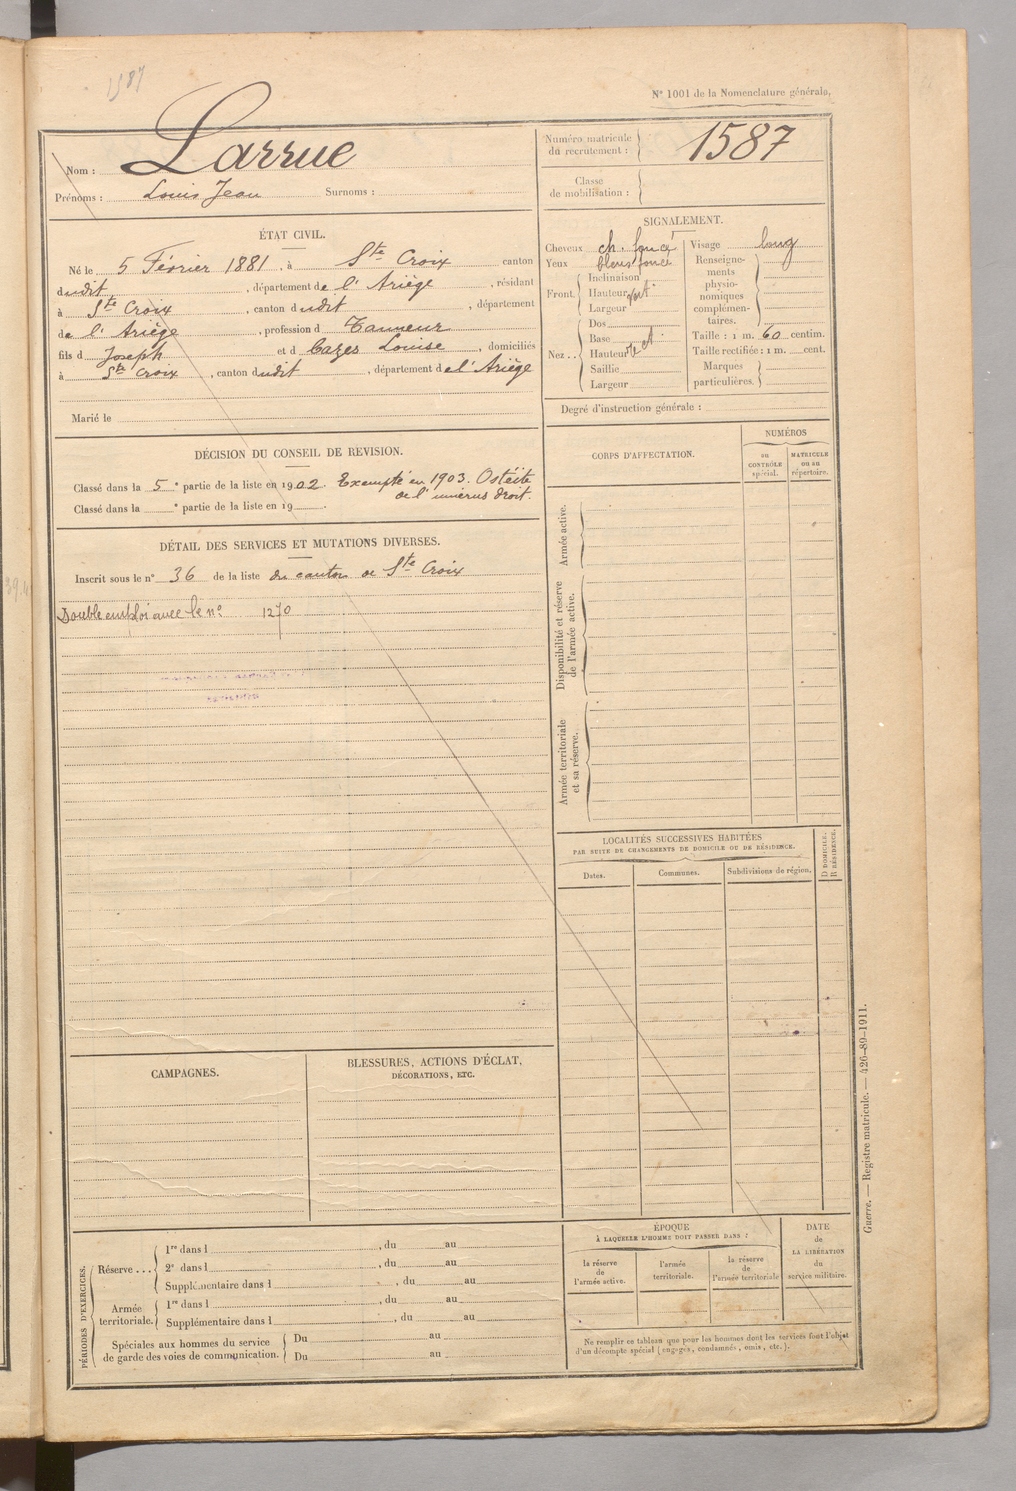 1587
N° 1001 de la Nomenclature générale.
Nom : Larrue
Prénoms : Louis Jean Surnoms :
Numéro matricule du recrutement : 1587
Classe de mobilisation :
ÉTAT CIVIL.
Né le 5 Février 1881, à Ste Croix canton
dudit, département de l'Ariège, résidant
à Ste Croix, canton dudit, département
de l'Ariège, profession d Tanneur
fils d Joseph et d Cazes Louise, domiciliés
à Ste Croix, canton dudit, département de l'Ariège
Marié le
SIGNALEMENT.
Cheveux ch. foncé
Yeux bleus foncé
Front. Inclinaison
Hauteur
Largeur
Nez.. Dos
Base
Hauteur
Saillie
Largeur
Visage long
Renseignements physionomiques complémentaires.
Taille : 1 m. 60 centim.
Taille rectifiée : 1 m. cent.
Marques particulières.
Degré d'instruction générale :
DÉCISION DU CONSEIL DE RÉVISION.
Classé dans la 5e partie de la liste en 1902. Exempté en 1903. Ostéite
de l'umérus droit.
Classé dans la e partie de la liste en 19 .
DÉTAIL DES SERVICES ET MUTATIONS DIVERSES.
Inscrit sous le n° 36 de la liste du canton de Ste Croix
Double emploi avec le n° 1270
CORPS D'AFFECTATION.
NUMÉROS
au CONTRÔLE spécial.
MATRICULE ou au répertoire.
Armée active.
Disponibilité et réserve de l'armée active.
Armée territoriale et sa réserve.
LOCALITÉS SUCCESSIVES HABITÉES
PAR SUITE DE CHANGEMENTS DE DOMICILE OU DE RÉSIDENCE.
Dates.
Communes.
Subdivisions de région.
D DOMICILE.
R RÉSIDENCE.
CAMPAGNES.
BLESSURES, ACTIONS D'ÉCLAT,
DÉCORATIONS, ETC.
PÉRIODES D'EXERCICES.
Réserve ... 1re dans l , du au
2e dans l , du au
Supplémentaire dans l , du au
Armée territoriale. 1re dans l , du au
Supplémentaire dans l , du au
Spéciales aux hommes du service
de garde des voies de communication. Du au
Du au
ÉPOQUE
À LAQUELLE L'HOMME DOIT PASSER DANS :
la réserve de l'armée active.
l'armée territoriale.
la réserve de l'armée territoriale
DATE de LA LIBÉRATION du service militaire.
Ne remplir ce tableau que pour les hommes dont les services font l'objet
d'un décompte spécial (engagés, condamnés, omis, etc.).
Guerre. — Registre matricule. — 426-89-1911.